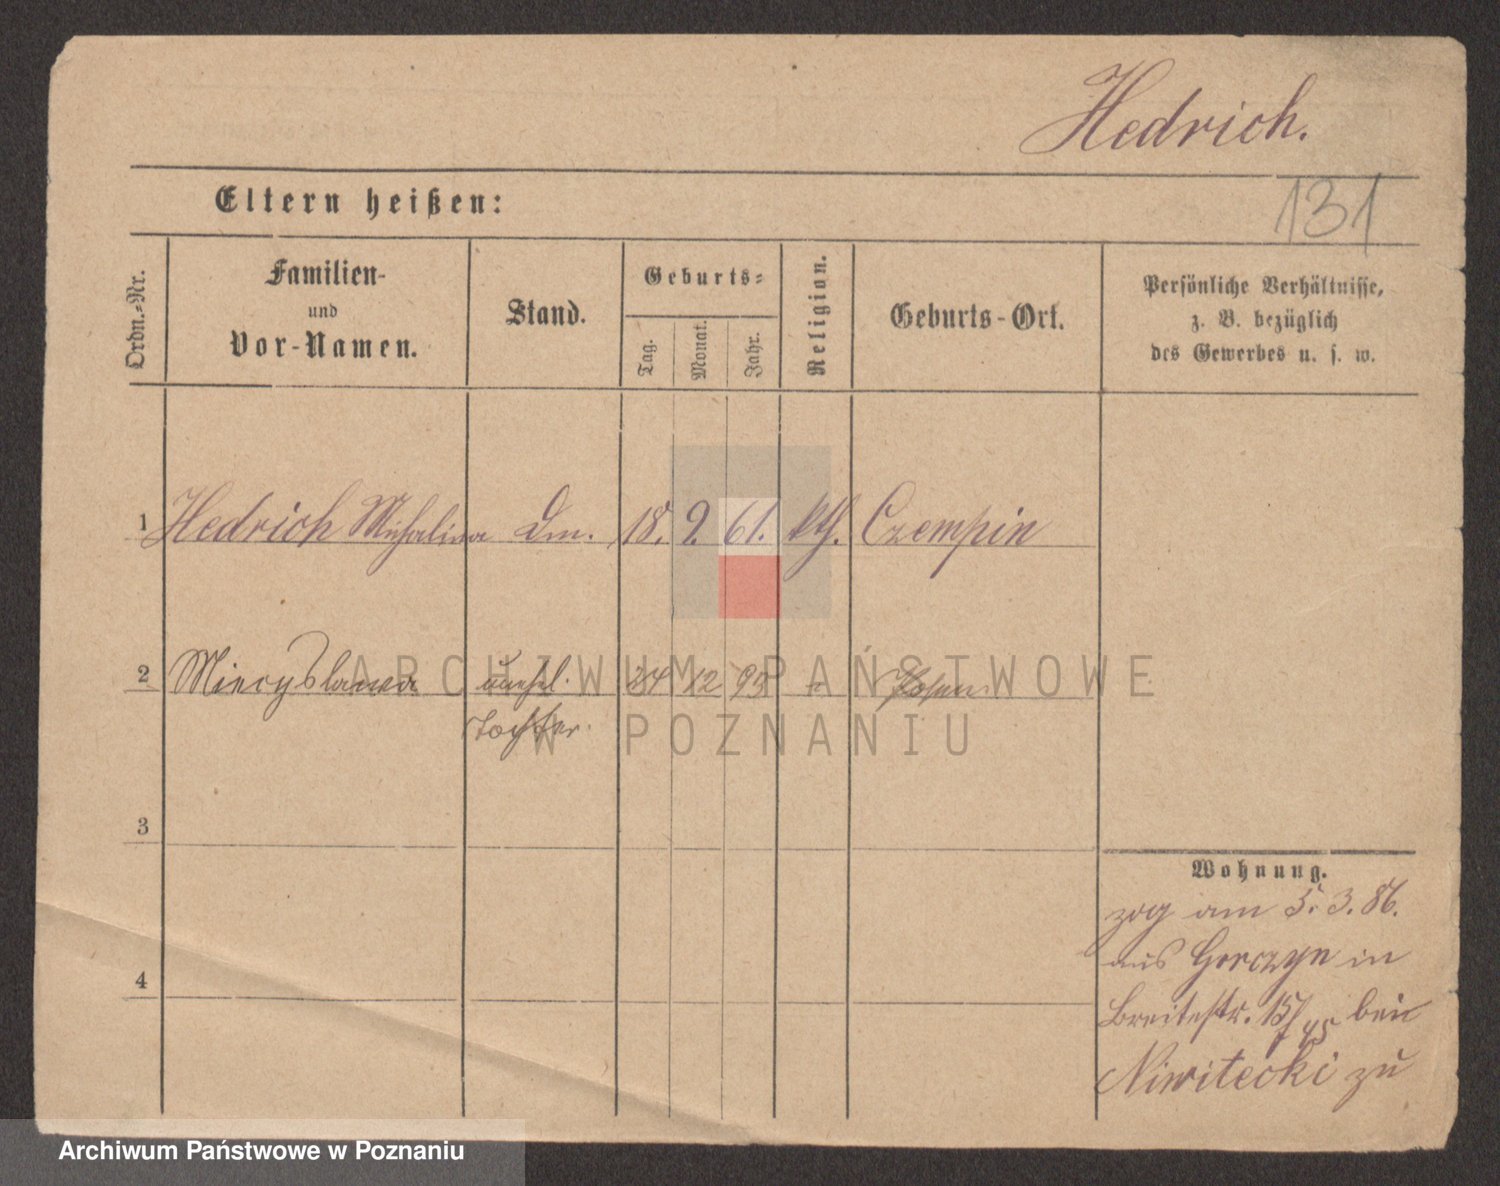 Hedrich.
131
Eltern heißen:
Ordn.-Nr.
Familien-
und
Vor-Namen.
Stand.
Geburts-
Tag.
Monat.
Jahr.
Religion.
Geburts-Ort.
Persönliche Verhältnisse,
z. B. bezüglich
des Gewerbes u. s. w.
1 Hedrich Michalina Dm. 18. 9. 61. kth. Czempin
2 Miecyslawa unehl. 24 12 95 Posen
Tochter
ARCHIWUM PAŃSTWOWE
W POZNANIU
3
4
Wohnung.
zog am 5. 3. 86.
aus Gorczyn in
Breitestr. 15/ bei
Niwitecki zu
Archiwum Państwowe w Poznaniu